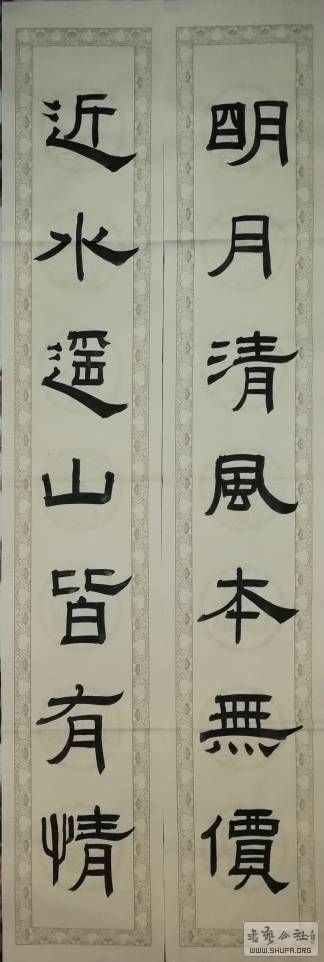 明月清風本無價
近水遥山皆有情
书艺公社
WWW.SHUFA.ORG